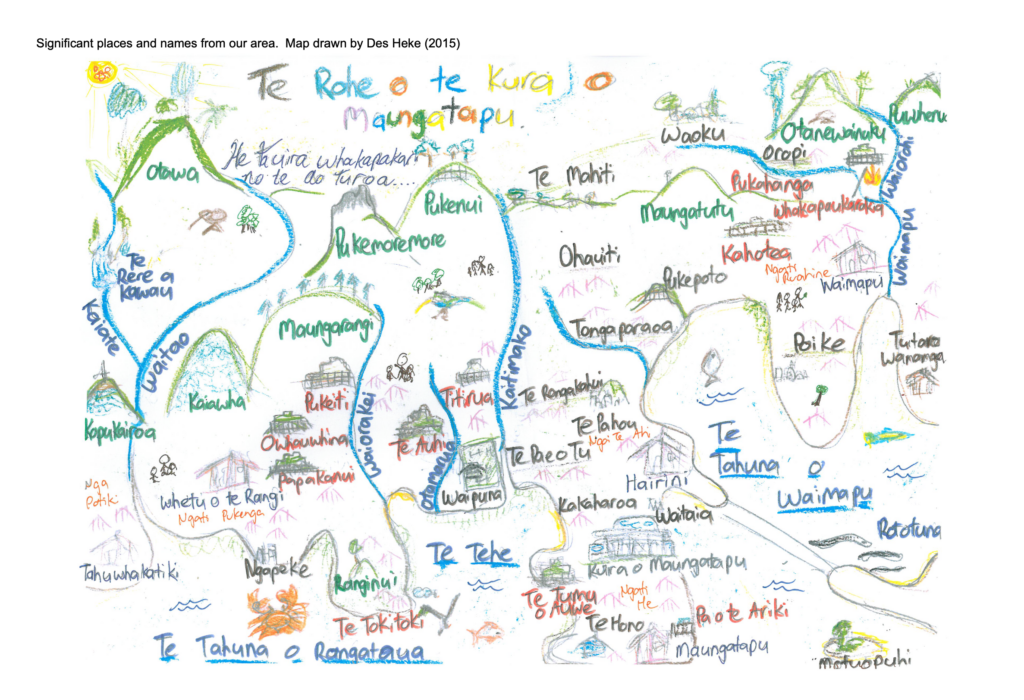 Significant places and names from our area.  Map drawn by Des Heke (2015)
Te Rohe o te Kura o
Maungatapu.
He tauira whakapakari
no te ao turoa....
Otawa
Pukenui
Te Mahiti
Waoku
Otanewainuku
Puwhenu
Oropi
Waiorohi
Pukahanga
Whakapaukaroka
Maungatutu
Kahotea
Pukemoremore
Ohauiti
Te
Rere a
Kawau
Ngati
Ruahine
Waimapu
Waimapu
Pukepoto
Kaiate
Waitao
Maungarangi
Tongaparaoa
Poike
Tutara
Wananga
Kaitimako
Kaiawha
Pukeiti
Titirua
Te Rangakahui
Kopukairoa
Owhauwhina
Waiorakei
Te Auhi
Te Pahou
Ngai Te Ahi
Te Pae o Tu
Te
Tahuna o
Waimapu
Papakanui
Otamarua
Waipuna
Hairini
Nga
Potiki
Whetu o te Rangi
Ngati Pukenga
Kakaharoa
Waitaia
Rototuna
Tahuwhakatiki
Ngapeke
Ranginui
Te Tehe
Kura o Maungatapu
Te Tumu
o Auwe
Ngati
He
Te Tokitoki
Te Horo
Pa o te Ariki
Te Tahuna o Rangataua
Maungatapu
Motuopuhi